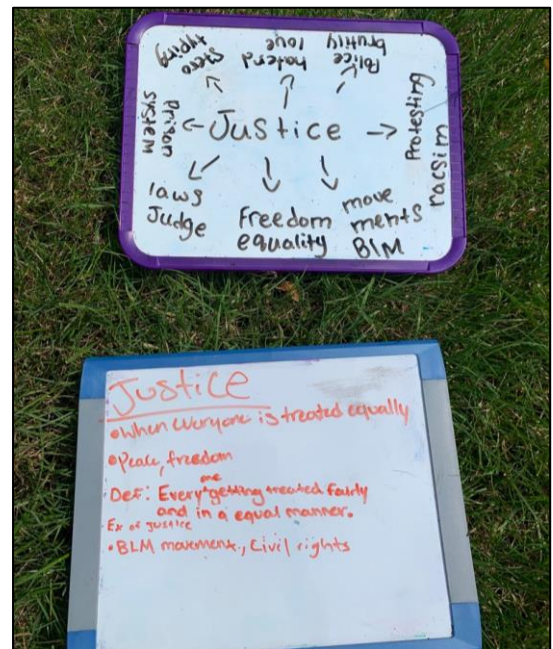 stero
typing
hatered
love
Police
brutlity
Prison
system
Justice
Protesting
racsim
laws
Judge
Freedom
equality
move
ments
BLM
Justice
• When everyone is treated equally
• Peace, freedom
one
• Def: Every getting treated fairly
and in a equal manner.
• Ex of justice
• BLM movement, Civil rights